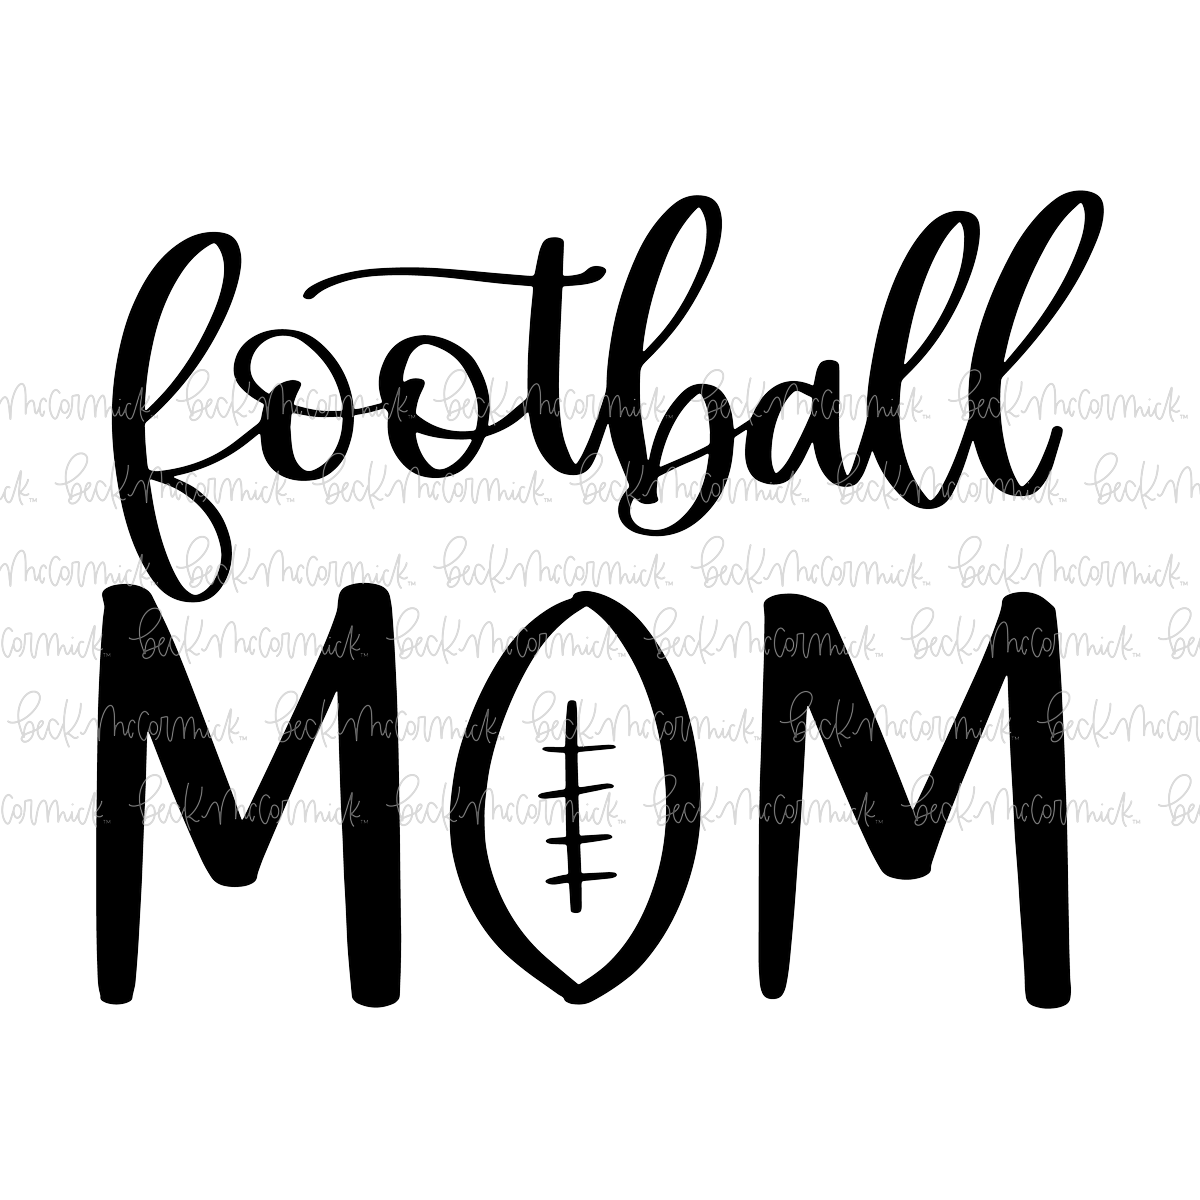 football
MOM
beck McCormick™